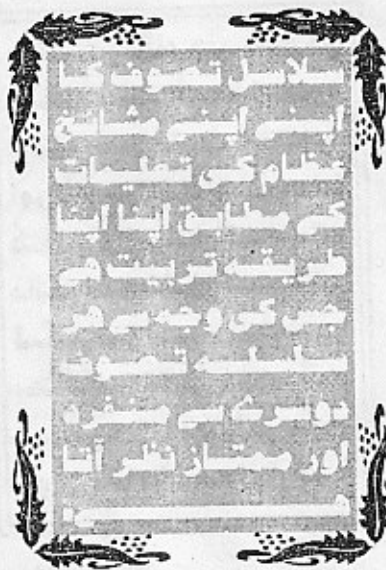 سلاسل تصوف کا
اپنے اپنے مشائخ
عظام کی تعلیمات
کے مطابق اپنا اپنا
طریقہ تربیت ہے
جس کی وجہ سے ہر
سلسلہ تصوف
دوسرے سے منفرد
اور ممتاز نظر آتا
ہے۔